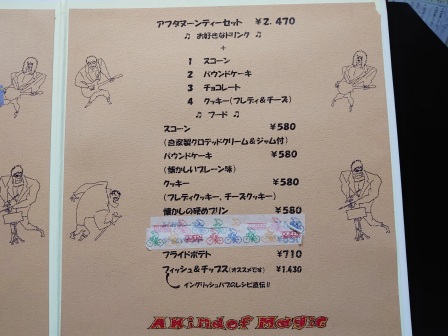 アフタヌーンティーセット ¥2.470
♫ お好きなドリンク ♫
+
1 スコーン
2 パウンドケーキ
3 チョコレート
4 クッキー(フレディ&チーズ)
♫ フード ♫
スコーン ¥580
(自家製クロテッドクリーム&ジャム付)
パウンドケーキ ¥580
(懐かしいプレーン味)
クッキー ¥580
(フレディクッキー、チーズクッキー)
懐かしの硬めプリン ¥580
フライドポテト ¥710
フィッシュ&チップス(オススメです) ¥1.430
イングリッシュパブのレシピ直伝!!
A Kind of Magic